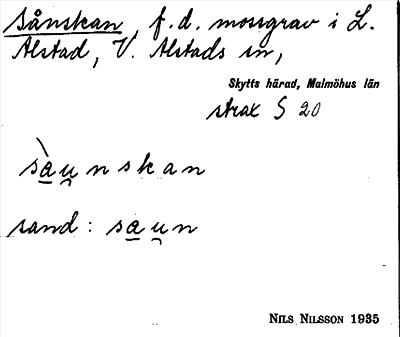 Sånskan, f.d. mossgrav i L.
Alstad, V. Alstads sn,
Skytts härad, Malmöhus län
strax S 20
sàu̯nskan
sand: sau̯n
NILS NILSSON 1935